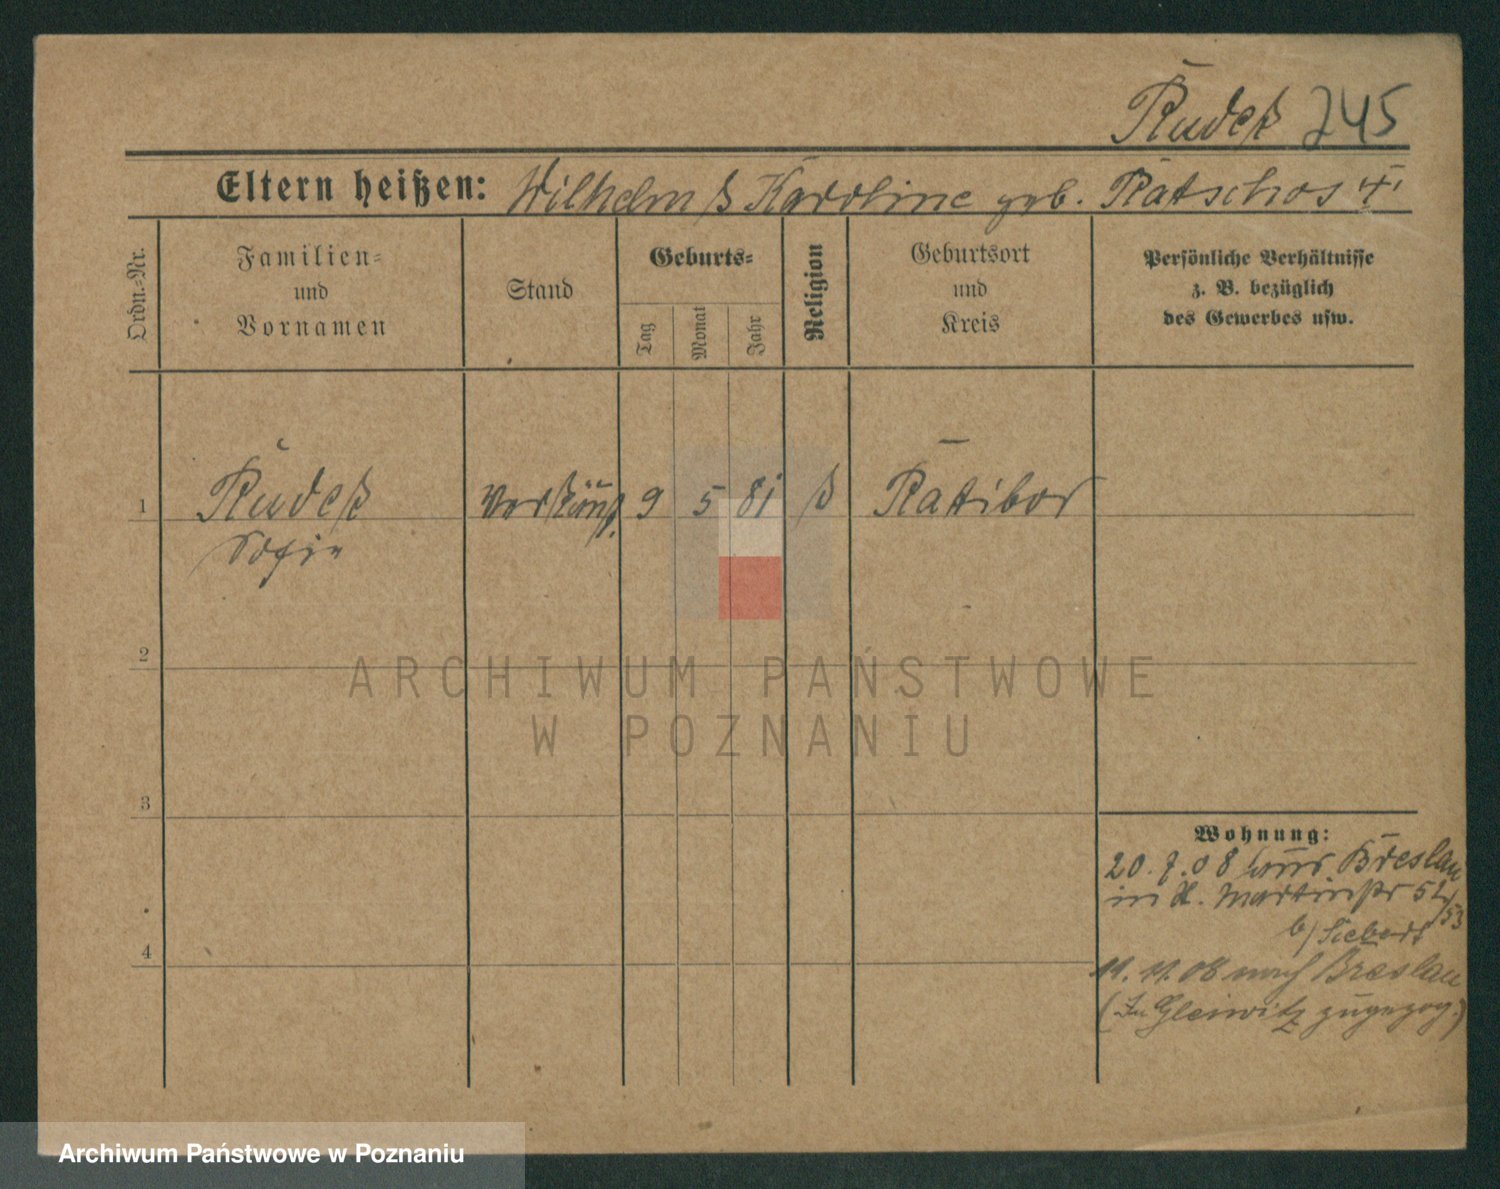 Rudek 745
Eltern heißen: Wilhelm & Karoline geb. Ratschos
Ordn.-Nr.
Familien-
und
Vornamen
Stand
Geburts-
Tag
Monat
Jahr
Religion
Geburtsort
und
Kreis
Persönliche Verhältnisse
z. B. bezüglich
des Gewerbes usw.
1 Rudek 9 5 81 k Ratibor
Sofie
2
3
4
Wohnung:
20. 7. 08 Breslau
in H. Martinstr 52/53
b/ Siebert
11. 11. 08 nach Breslau
(In Gleiwitz zugezog.)
ARCHIWUM PAŃSTWOWE
W POZNANIU
Archiwum Państwowe w Poznaniu